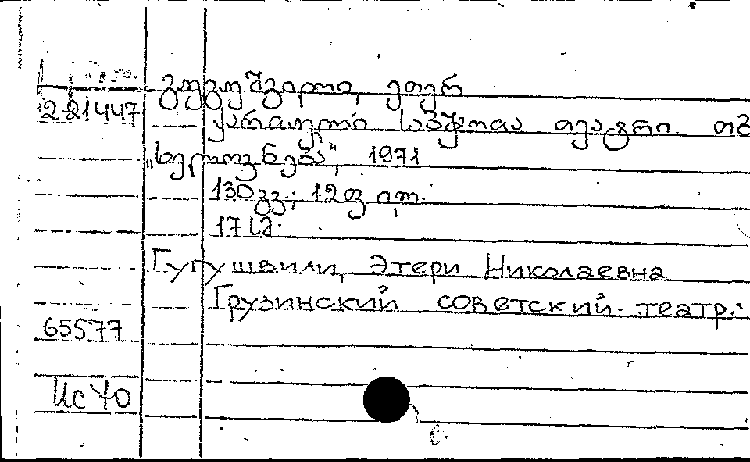 გუგუშვილი, ეთერ
2-21447 ქართული საბჭოთა თეატრი. თბ
„ხელოვნება", 1971
130 გვ; 12 ფ ილ.
17 სმ.
Гугушвили, Этери Николаевна
Грузинский советский театр.:
65577
Ис 70